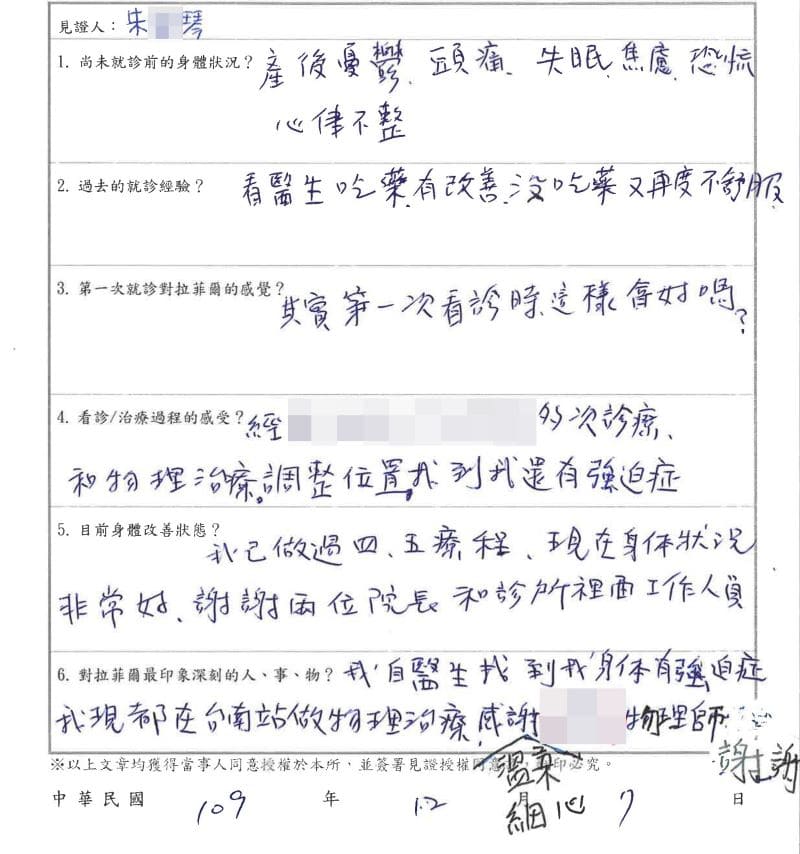 見證人：朱 琴
1. 尚未就診前的身體狀況？產後憂鬱、頭痛、失眠、焦慮、恐慌
心律不整
2. 過去的就診經驗？看醫生吃藥有改善、沒吃藥又再度不舒服
3. 第一次就診對拉菲爾的感覺？其實第一次看診時、這樣會好嗎？
4. 看診/治療過程的感受？經 多次診療、
和物理治療。調整位置，找到我還有強迫症
5. 目前身體改善狀態？我已做過四、五療程、現在身体狀況
非常好、謝謝兩位院長和診所裡面工作人員
6. 對拉菲爾最印象深刻的人、事、物？我 醫生找到我身体有強迫症
我現都在台南站做物理治療，感謝 物理師
溫柔
細心
謝謝
※以上文章均獲得當事人同意授權於本所，並簽署見證授權同意 印必究。
中華民國 109 年 12 月 7 日